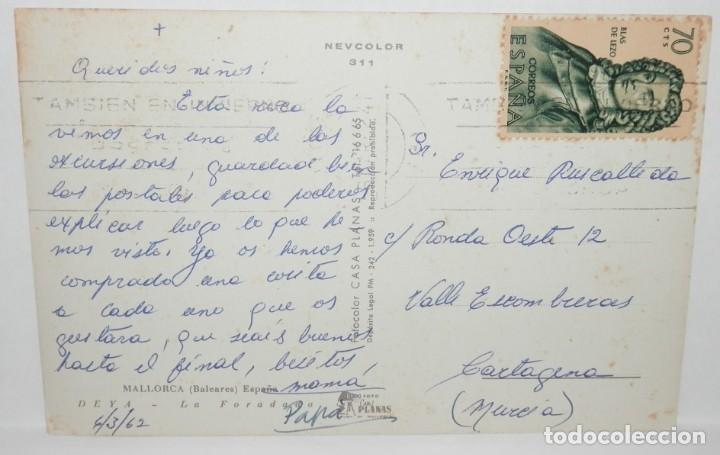 +
NEVCOLOR
311
70 CTS
BLAS DE LEZO
CORREOS
ESPAÑA
Queridos niños:
Esta roca la
vemos en una de las
excursiones, guardad bien
las postales para poderos
explicar luego lo que he
mos visto. Ya os hemos
comprado una cosita
a cada uno que os
gustara, que seais buenos
hasta el final, besitos,
mamá
Papá
MALLORCA (Baleares) España
DEYA - La Foradada
4/3/62
Fotocolor CASA PLANAS
Depósito Legal PM - 242 - 1.959 :: Reproducción prohibida
16 6 65
FOTO
Casa
PLANAS
TAMBIEN EN
Sr. Enrique Ruscalleda
c/ Ronda Oeste 12
Valle Escombreras
Cartagena
(Murcia)
todocoleccion